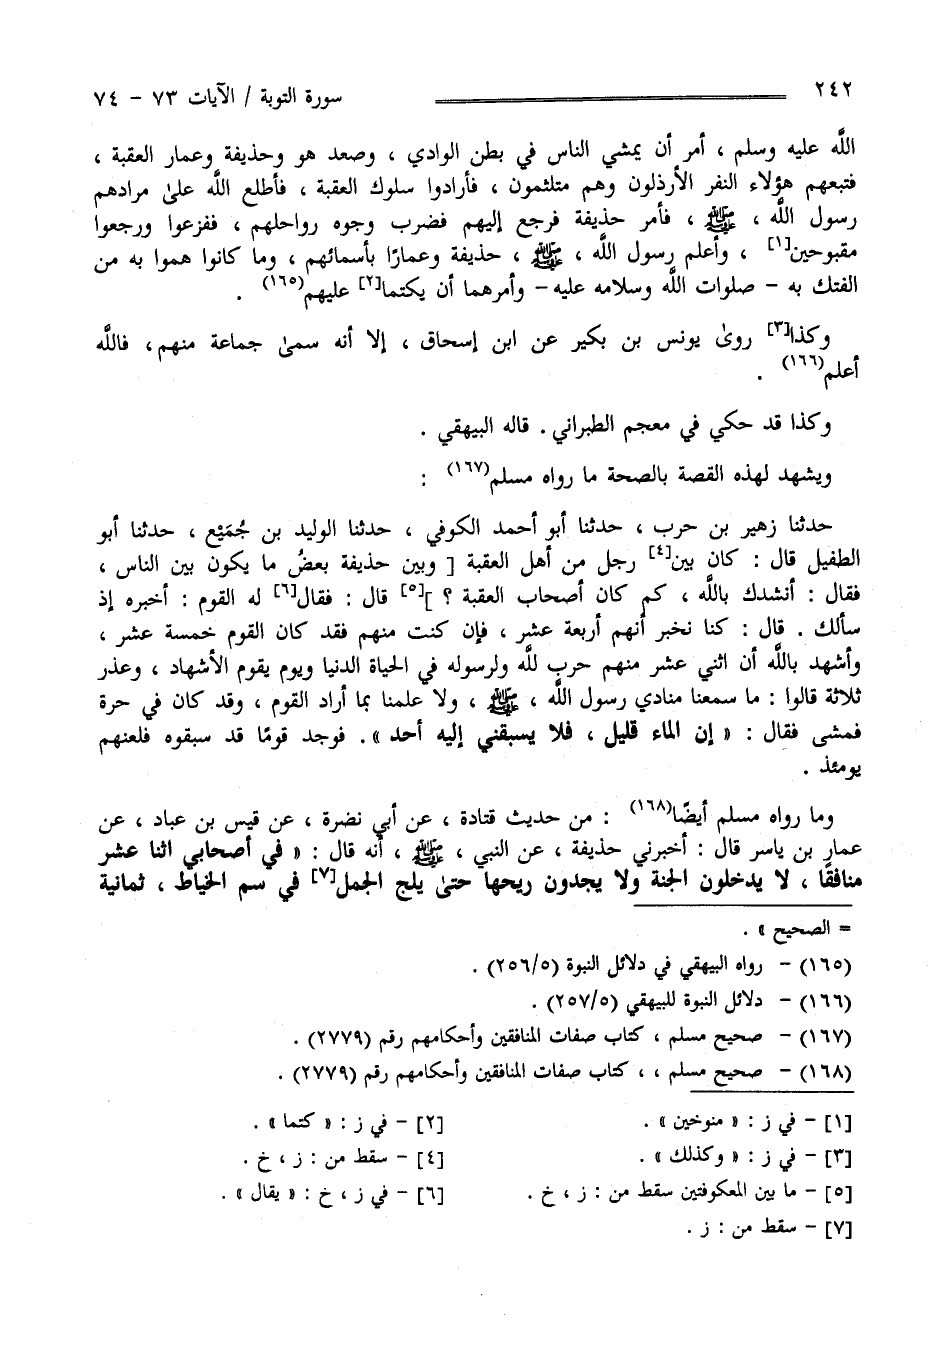 ٢٤٢
سورة التوبة / الآيات ٧٣ - ٧٤
اللَّه عليه وسلم ، أمر أن يمشي الناس في بطن الوادي ، وصعد هو وحذيفة وعمار العقبة ،
فتبعهم هؤلاء النفر الأرذلون وهم متلثمون ، فأرادوا سلوك العقبة ، فأطلع اللَّه علىٰ مرادهم
رسول اللَّه ، ﷺ ، فأمر حذيفة فرجع إليهم فضرب وجوه رواحلهم ، ففزعوا ورجعوا
مقبوحين[١] ، وأعلم رسول اللَّه ، ﷺ ، حذيفة وعمارًا بأسمائهم ، وما كانوا هموا به من
الفتك به - صلوات اللَّه وسلامه عليه - وأمرهما أن يكتما[٢] عليهم(١٦٥) .
وكذا[٣] روىٰ يونس بن بكير عن ابن إسحاق ، إلا أنه سمىٰ جماعة منهم، فاللَّه
أعلم(١٦٦) .
وكذا قد حكي في معجم الطبراني. قاله البيهقي .
ويشهد لهذه القصة بالصحة ما رواه مسلم(١٦٧) :
حدثنا زهير بن حرب ، حدثنا أبو أحمد الكوفي ، حدثنا الوليد بن جُمَيْع ، حدثنا أبو
الطفيل قال : كان بين[٤] رجل من أهل العقبة [ وبين حذيفة بعضُ ما يكون بين الناس ،
فقال : أنشدك باللَّه ، كم كان أصحاب العقبة ؟ ][٥] قال : فقال[٦] له القوم : أخبره إذ
سألك . قال : كنا نخبر أنهم أربعة عشر ، فإن كنت منهم فقد كان القوم خمسة عشر ،
وأشهد باللَّه أن اثني عشر منهم حرب للَّه ولرسوله في الحياة الدنيا ويوم يقوم الأشهاد ، وعذر
ثلاثة قالوا : ما سمعنا منادي رسول اللَّه ، ﷺ ، ولا علمنا بما أراد القوم ، وقد كان في حرة
فمشى فقال : « إن الماء قليل ، فلا يسبقني إليه أحد ». فوجد قومًا قد سبقوه فلعنهم
يومئذ .
وما رواه مسلم أيضًا(١٦٨) : من حديث قتادة ، عن أبي نضرة ، عن قيس بن عباد ، عن
عمار بن ياسر قال : أخبرني حذيفة ، عن النبي ، ﷺ ، أنه قال : « في أصحابي اثنا عشر
منافقًا ، لا يدخلون الجنة ولا يجدون ريحها حتىٰ يلج الجمل[٧] في سم الخياط ، ثمانية
= الصحيح » .
(١٦٥) - رواه البيهقي في دلائل النبوة (٢٥٦/٥) .
(١٦٦) - دلائل النبوة للبيهقي (٢٥٧/٥) .
(١٦٧) - صحيح مسلم ، كتاب صفات المنافقين وأحكامهم رقم (٢٧٧٩) .
(١٦٨) - صحيح مسلم ، ، كتاب صفات المنافقين وأحكامهم رقم (٢٧٧٩) .
[١] - في ز : « منوخين » .
[٢] - في ز : « كتما » .
[٣] - في ز : « وكذلك » .
[٤] - سقط من : ز ، خ .
[٥] - ما بين المعكوفتين سقط من : ز ، خ .
[٦] - في ز ، خ : « يقال » .
[٧] - سقط من : ز .